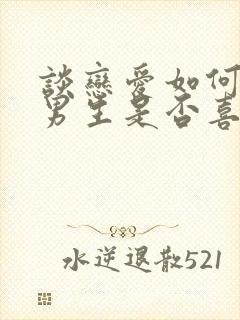 談戀愛如何
男生是否喜
水逆退散521